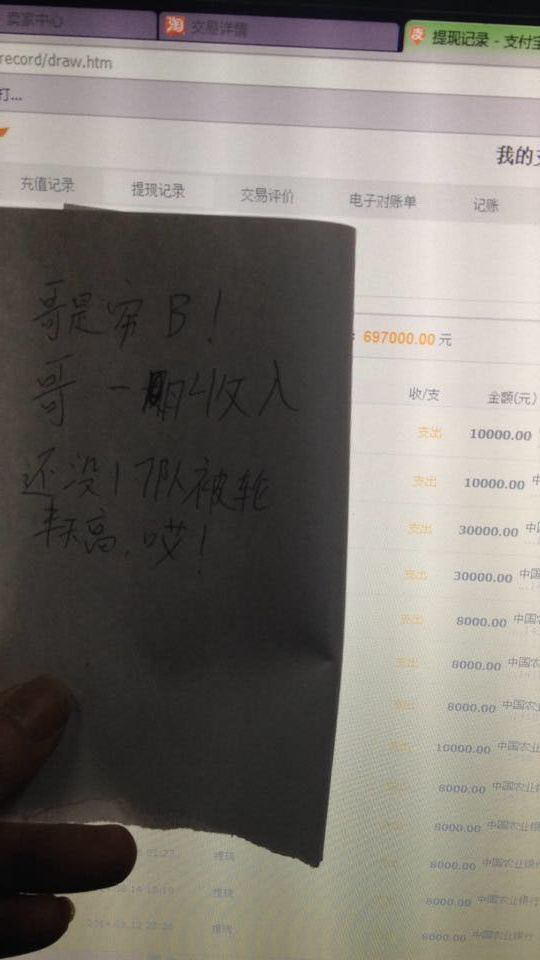 卖家中心
淘 交易详情
支 提现记录 - 支付宝
record/draw.htm
打...
我的支
充值记录 提现记录 交易评价 电子对账单 记账
哥是穷B!
哥一期收入
还没17队被轮
高,哎!
: 697000.00 元
收/支 金额(元)
支出 10000.00 中
支出 10000.00 中
支出 30000.00 中国
支出 30000.00 中国
支出 8000.00 中国
支出 8000.00 中国农
支出 8000.00 中国农业
支出 10000.00 中国农业
支出 8000.00 中国农业
8000.00 中国农业银
8000.00 中国农业银行
8000.00 中国农业银行
8000.00 中国农业银行
提现
提现
提现